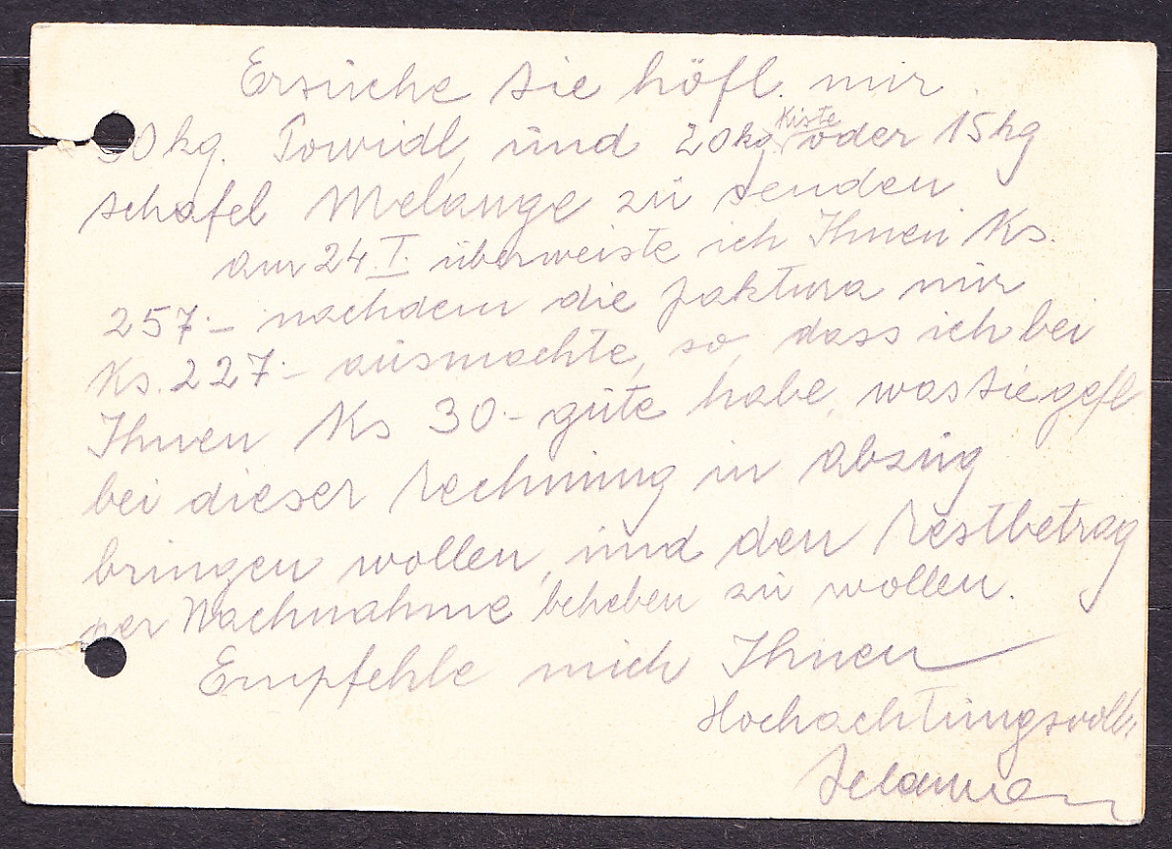 Ersuche Sie höfl. mir
0 kg. Powidl, und 20 kg. Kiste oder 15 kg
schafel Melange zu senden
am 24.I. überweiste ich Ihnen Ks.
257.- nachdem die faktura mir
Ks. 227.- ausmachte, so, dass ich bei
Ihnen Ks 30.- gute habe, was Sie gefl
bei dieser rechnung in abzug
bringen wollen, und den restbetrag
per Nachnahme beheben zu wollen.
Empfehle mich Ihnen
Hochachtungsvoll